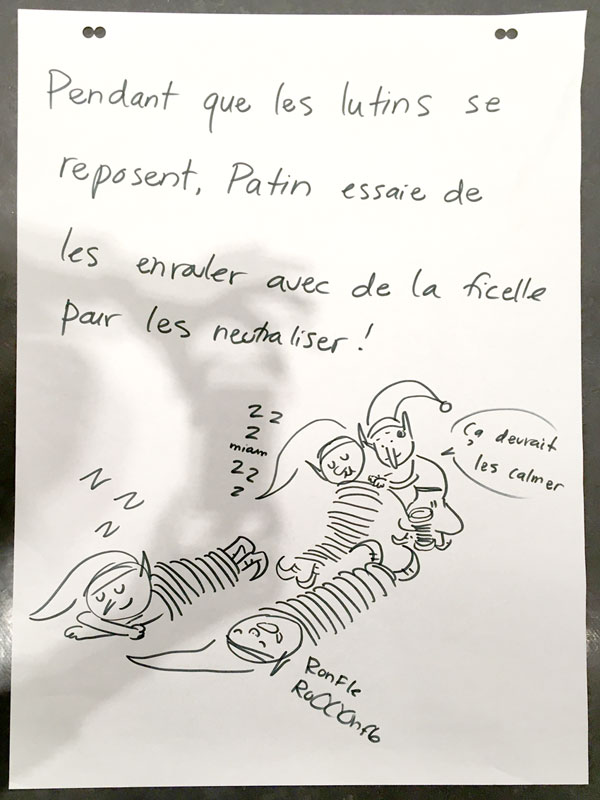 Pendant que les lutins se
reposent, Patin essaie de
les enrouler avec de la ficelle
pour les neutraliser !
Z Z
Z
miam
Z Z
Z
Ça devrait
les calmer
Z
Z
Z
Ronfle